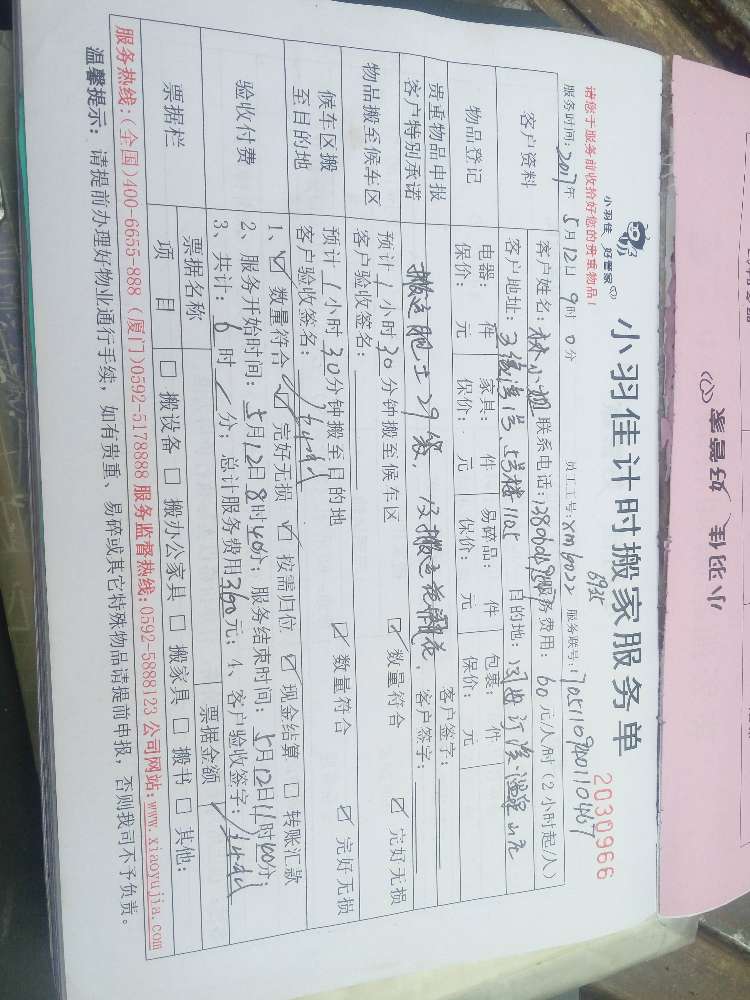 小羽佳 好管家
小羽佳 好管家
小羽佳计时搬家服务单
2030966
请您于服务前收拾好您的贵重物品!
员工工号: xm6022 服务联号:
6935
服务时间: 2017年 5月12日 9时 0分
客户资料
客户姓名: 林小姐 联系电话: 服务费用: 60元/人/时(2小时起/人)
客户地址: 5号楼1105 目的地:
物品登记
电器: 件 家具: 件 易碎品: 件 包裹: 件
保价: 元 保价: 元 保价: 元 保价: 元
贵重物品申报
客户特别承诺
搬运肥土29袋, 客户签字:
客户签字:
物品搬至候车区
预计 1小时 30分钟搬至候车区 ☑ 数量符合 ☑ 完好无损
客户验收签名:
候车区搬
至目的地
预计 1小时 30分钟搬至目的地 ☑ 数量符合 ☑ 完好无损
客户验收签名:
验收付费
1、☑ 数量符合 ☑ 完好无损 ☑ 按需归位 ☑ 现金结算 ☐ 转账汇款
2、服务开始时间: 5月12日8时40分; 服务结束时间: 5月12日11时40分;
3、共计: 6时 / 分; 总计服务费用360元; 4、客户验收签字:
票据栏
票据名称 票据金额
项 目 ☐ 搬设备 ☐ 搬办公家具 ☐ 搬家具 ☐ 搬书 ☐ 其他:
服务热线:(全国)400-6655-888 (厦门)0592-5178888 服务监督热线:0592-5888123 公司网站:www.xiaoyujia.com
温馨提示: 请提前办理好物业通行手续, 如有贵重、易碎或其它特殊物品请提前申报, 否则我司不予负责。